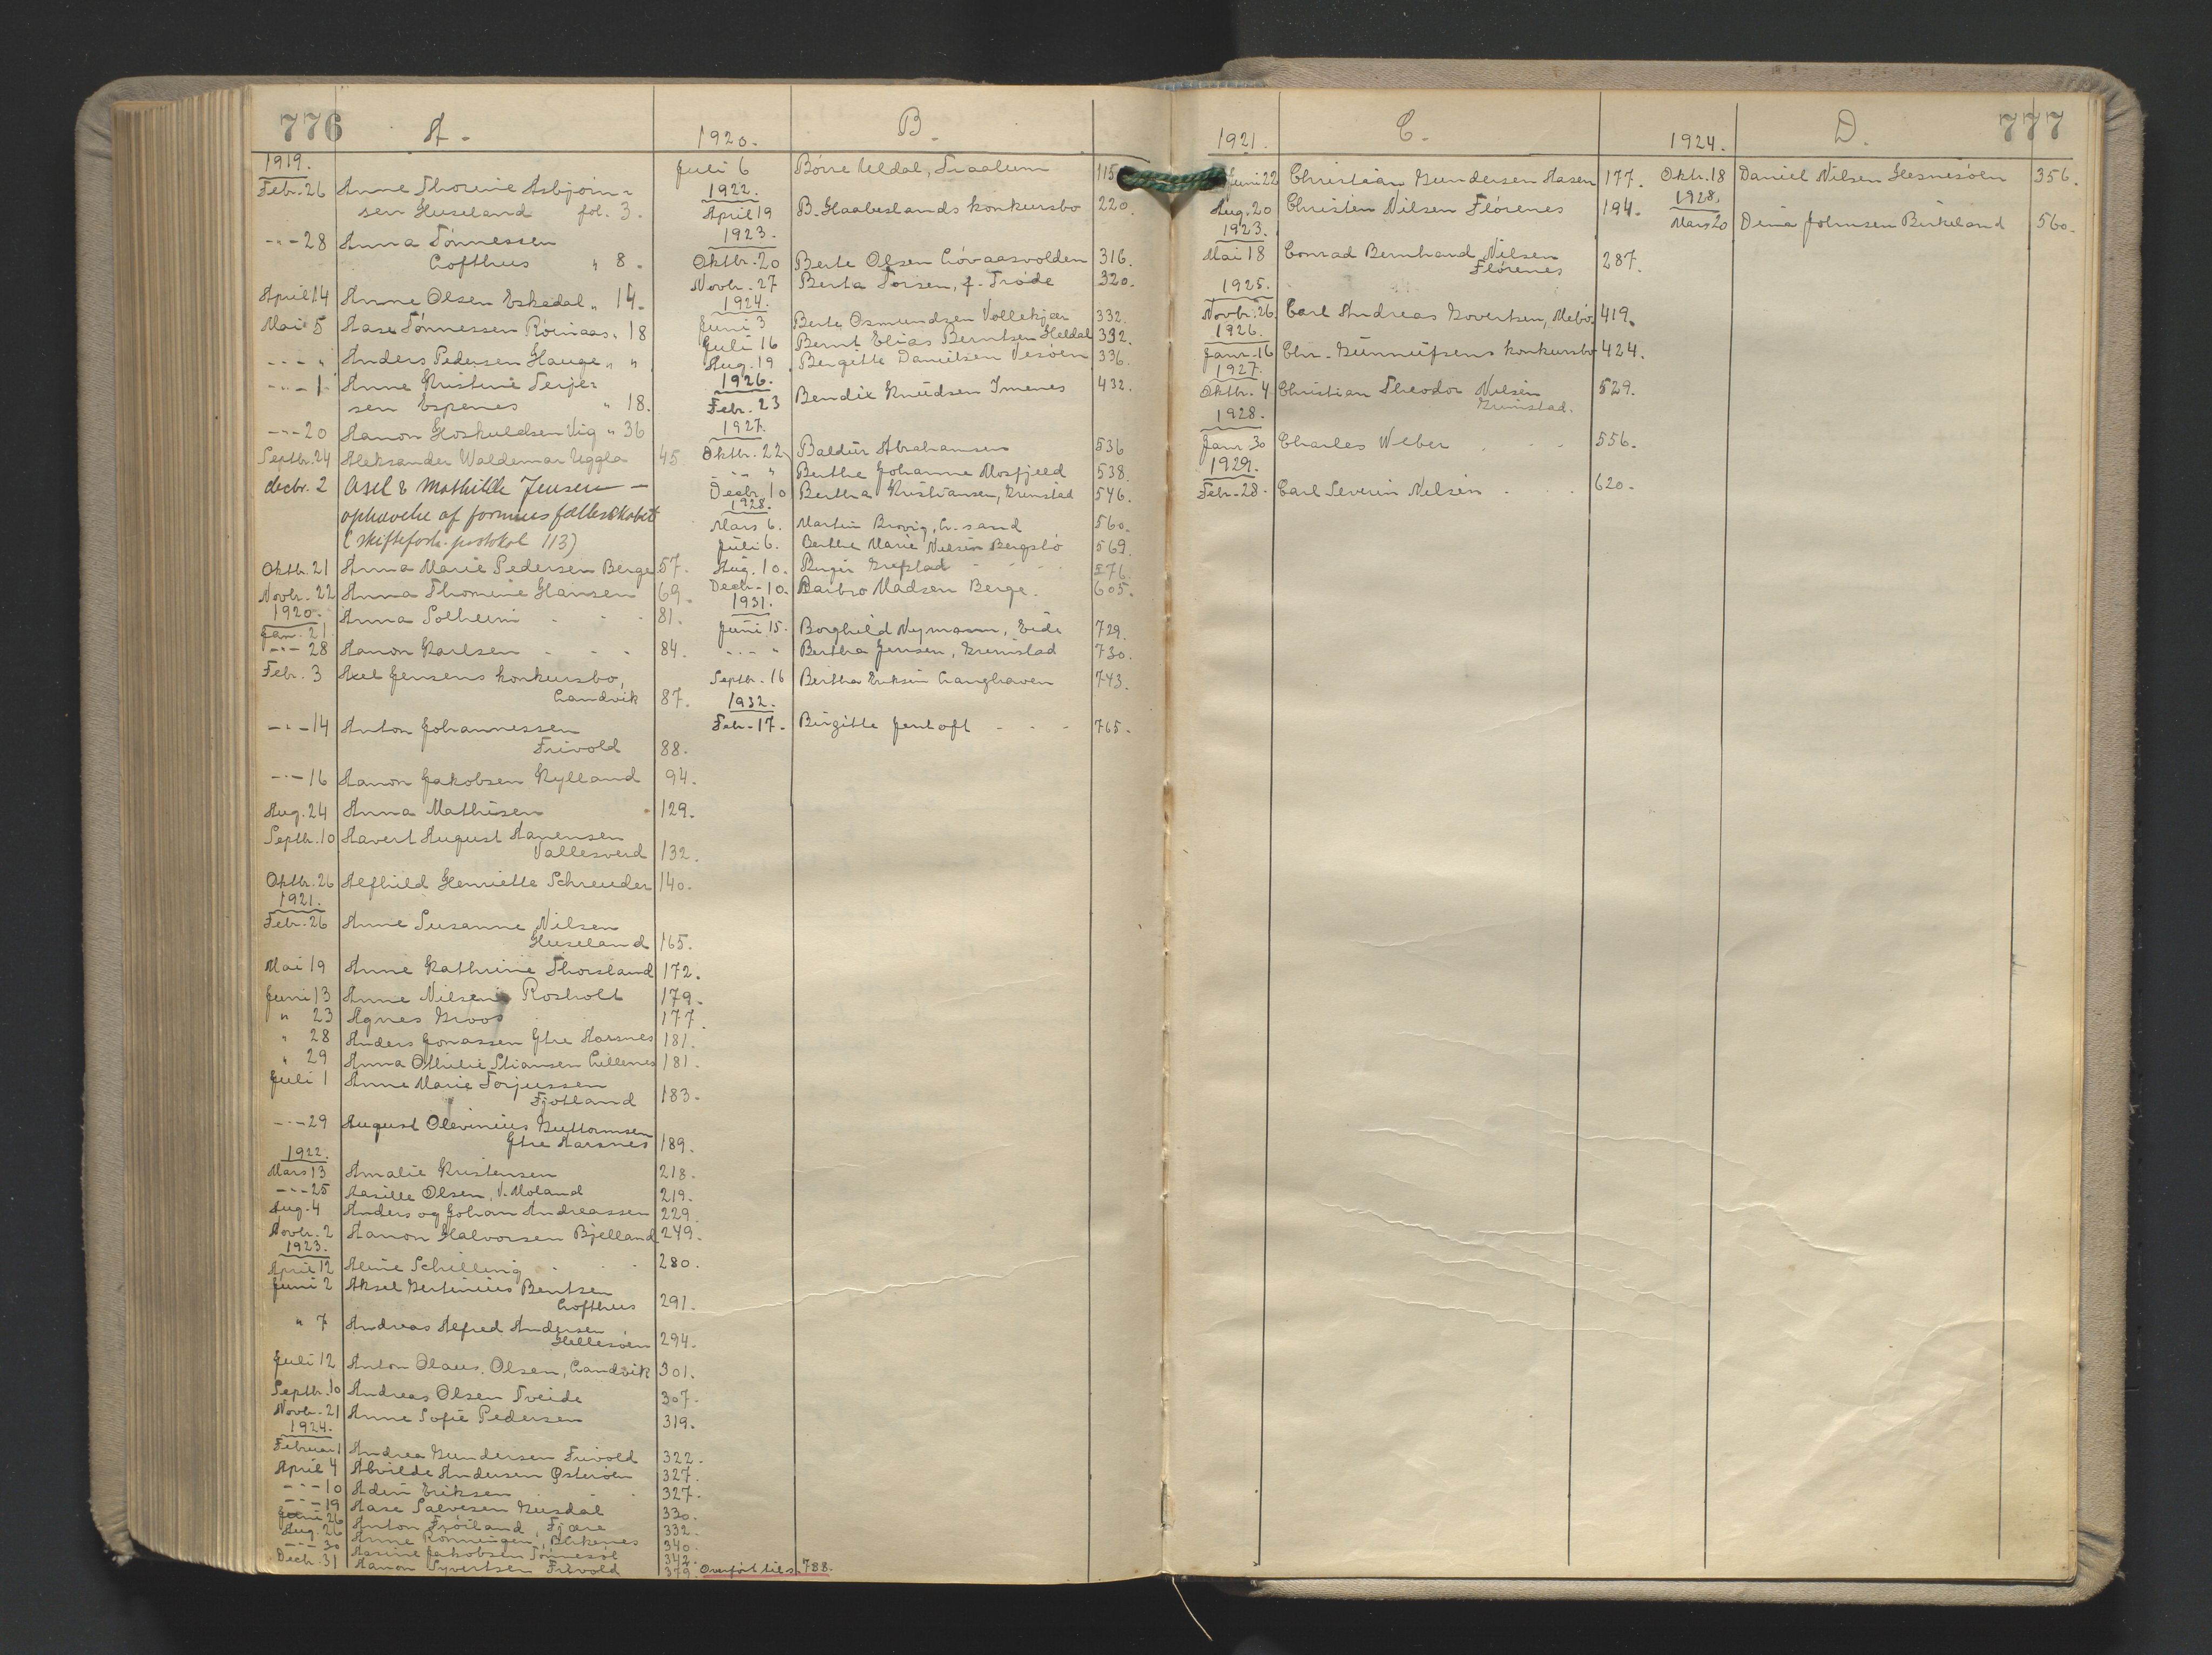 776
A.
1919.
Febr. 26 Anne Thorine Asbjørn-
sen Huseland fol. 3.
-"- 28 Anna Tönnessen
Lofthus " 8.
April 14 Anne Olsen Eskedal " 14.
Mai 5 Aase Tönnessen Röinaas " 18
-"- " Anders Pedersen Hauge " "
-"- 1 Anne Kristine Terje-
sen Espenes " 18.
-"- 20 Aanon Hoskuldsen Vig " 36
Septbr. 24 Aleksander Waldemar Uggla 45.
decbr. 2 Axel & Mathilde Jensen —
ophævelse af formuesfællesskabet
(skifteforh. protokol 113)
Oktbr. 21 Anna Marie Pedersen Berge 57.
Novbr. 22 Anna Thomine Hansen 69.
1920.
Jan. 21 Anna Solheim 81.
-"- 28 Aanon Karlsen 84.
Febr. 3 Axel Jensens konkursbo,
Landvik 87.
-"- 14 Anton Johannessen
Frivold 88.
-"- 16 Aanon Jakobsen Kylland 94.
Aug. 24 Anna Mathisen 129.
Septbr. 10 Aavert August Aanensen
Vallesverd 132.
Oktbr. 26 Alfhild Henriette Schreuder 140.
1921.
Febr. 26 Anne Susanne Nilsen
Huseland 165.
Mai 19 Anne Kathrine Thorsland 172.
Juni 13 Anne Nilsen Rosholt 179.
" 23 Agnes Groos 177.
" 28 Anders Jonassen Ytre Aarsnes 181.
" 29 Anna Othilie Stiansen Lillenes 181.
Juli 1 Anne Marie Torjussen
Fjotland 183.
-"- 29 August Olevinius Guttormsen
Ytre Aarsnes 189.
1922.
Mars 13 Amalie Kristensen 218.
-"- 25 Aasille Olsen, V. Moland 219.
Aug. 4 Anders og Johan Andreassen 229.
Novbr. 2 Aanon Halvorsen Bjelland 249.
1923.
April 12 Aline Schilling 280.
Juni 2 Aksel Bentsen
Lofthus 291.
" 7 Andreas Alfred Andersen
Hellesöen 294.
Juli 12 Anton Olaus Olsen, Landvik 301.
Septbr. 10 Andreas Olsen Tveide 307.
Novbr. 21 Anne Sofie Pedersen 319.
1924.
Februar 1 Andrea Gundersen Frivold 322.
April 4 Alvilde Andersen Österöen 327.
-"- 10 Adin Eriksen 327.
-"- 19 Aase Salvesen Gusdal 330.
Juni 26 Anton Fröiland, Fjære 332.
Aug. 26 Anne Rönningen, Birkenes 340.
-"- 30 Aasine Jakobsen 342.
Decbr. 31 Aanon Syvertsen Frivold 379. Overfört til s. 788.
B.
1920.
Juli 6 Börre Uldal, Traalum 115
1922.
April 19 B. Haabeslands konkursbo 220.
1923.
Oktbr. 20 Berte Olsen Lövaasvolden 316.
Novbr. 27 Berta Torsen, f. Tröde 320.
1924.
Juni 3 Berte Osmundsen Vollekjær 332.
Juli 16 Bernt Elias Berntsen Heldal 332.
Aug. 19 Bergitte Danielsen Vesöen 336.
1926.
Febr. 23 Bendix Knudsen Imenes 432.
1927.
Oktbr. 22 Baldur Abrahamsen 536
-"- " Berthe Johanne Mosfjeld 538.
Decbr. 10 Bertha Kristiansen, Grimstad 546.
1928.
Mars 6. Martin Brovig, Kr. sand 560.
Juli 6. Berthe Marie Nilsen Bergslö 569.
Aug. 10. Birger Grefstad 576.
Decbr. 10. Barbro Madsen Berge. 605.
1931.
Juni 15. Borghild Nymann, Eide 729.
-"- " Bertha Jensen, Grimstad 730.
Septbr. 16 Bertha Eriksen Langhaven 743.
1932.
Febr. 17. Birgitte Jentoft 765.
777
C.
1921.
Juni 22 Christian Gundersen Aasen 177.
Aug. 20 Christen Nilsen Flörenes 194.
1923.
Mai 18 Conrad Bernhard Nilsen
Flörenes 287.
1925.
Novbr. 26 Carl Andreas Govertsen, Mebö 419.
1926.
Janr. 16 Chr. Gunnufsens konkursbo 424.
1927.
Oktbr. 4 Christian Theodor Nilsen
Grimstad. 529.
1928.
Janr. 30 Charles Weber 556.
1929.
Febr. 28. Carl Severin Nilsen 620.
D.
1924.
Oktbr. 18 Daniel Nilsen Hesnesöen 356.
1928.
Mars 20 Dina Johnsen Birkeland 560.